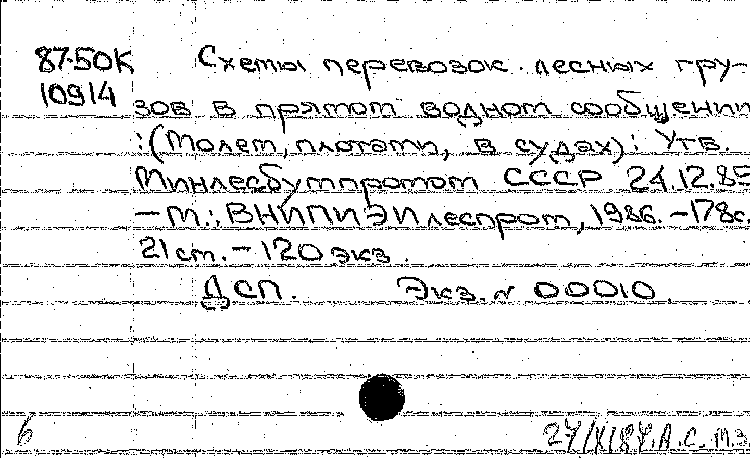 87-50К Схемы перевозок лесных гру-
10914 зов в прямом водном сообщении
:(Молем, плотами, в судах): Утв.
Минлесбумпромом СССР 24.12.85
– М.: ВНИПИЭИлеспром, 1986. – 178с.
21 см. – 120 экз.
ДСП. Экз. № 00010
6